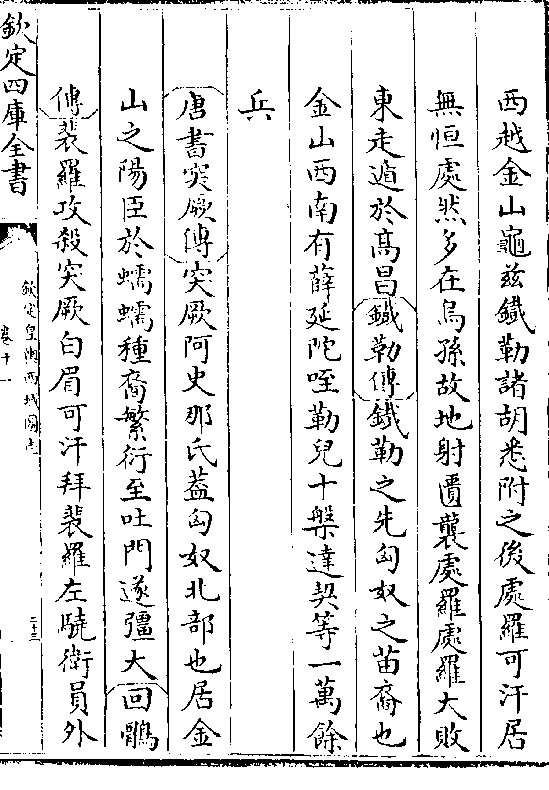 西越金山龜兹鐡勒諸胡悉附之後處羅可汗居
無恒處然多在烏孫故地射匱襲處羅處羅大敗
東走遁於髙昌鐡勒傳鐡勒之先匈奴之苗裔也
金山西南有薛延陀咥勒兒十槃達契等一萬餘
兵
唐書突厥傳突厥阿史那氏葢匈奴北部也居金
山之陽臣於蠕蠕種裔繁衍至吐門遂彊大回鶻
傳裴羅攻殺突厥白眉可汗拜裴羅左驍衛員外
欽定四庫全書
欽定皇輿西域圖志
卷十一
二十三